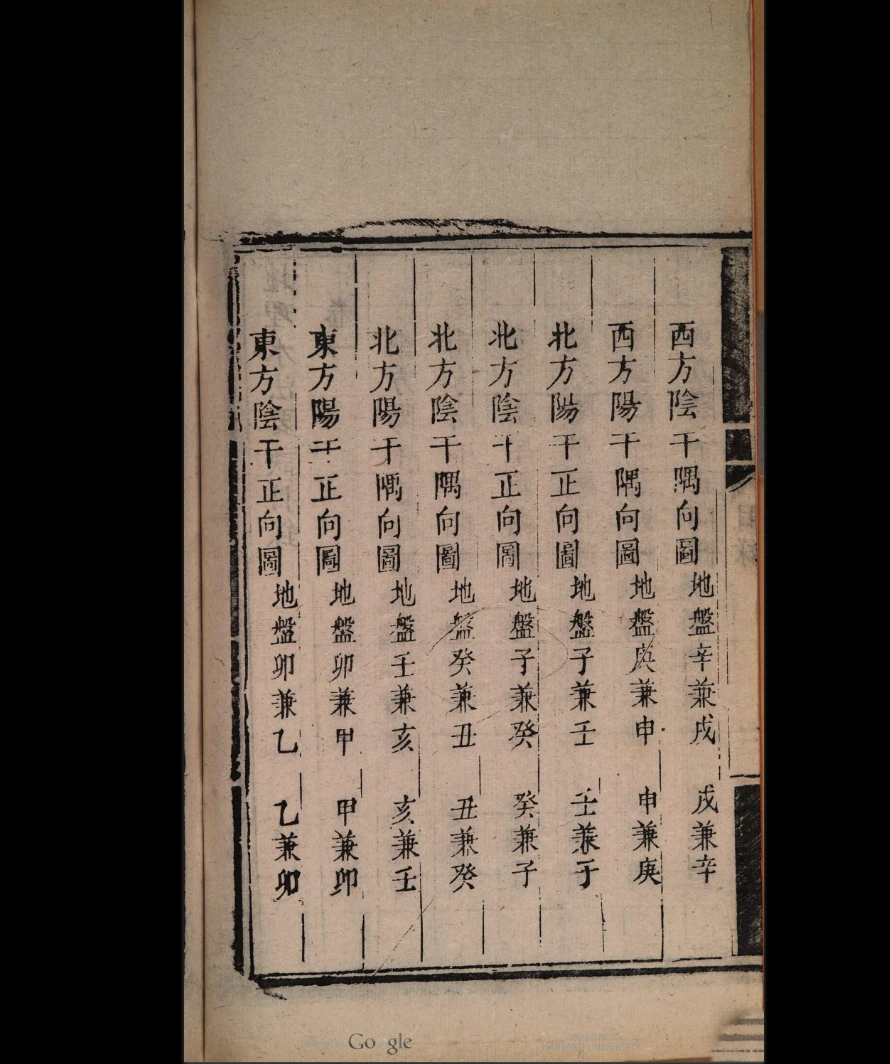 西方陰干隅向圖地盤辛兼戌 戌兼辛
西方陽干隅向圖地盤庚兼申 申兼庚
北方陽干正向圖地盤子兼壬 壬兼子
北方陰干正向圖地盤子兼癸 癸兼子
北方陰干隅向圖地盤癸兼丑 丑兼癸
北方陽干隅向圖地盤壬兼亥 亥兼壬
東方陽干正向圖地盤卯兼甲 甲兼卯
東方陰干正向圖地盤卯兼乙 乙兼卯
Google